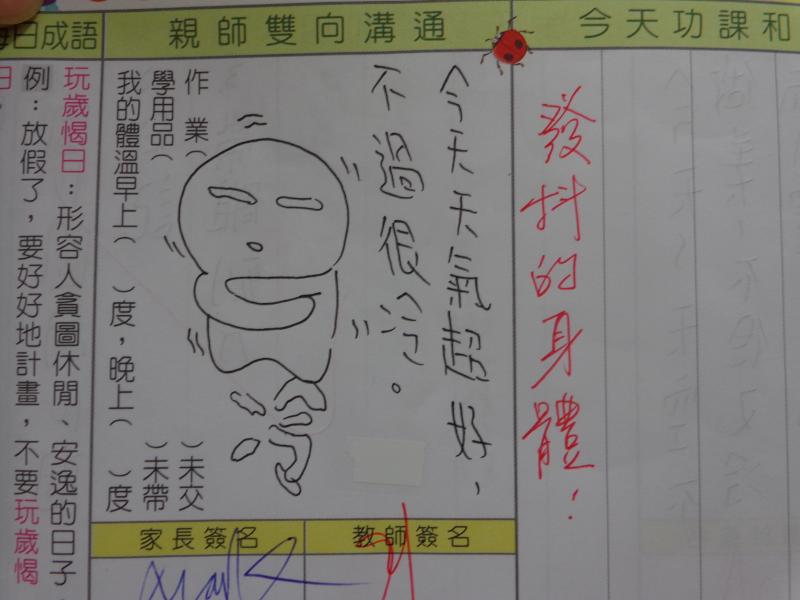 今天功課和
發抖的身體！
親師雙向溝通
今天天氣超好，
不過很冷。
冷
作業（　）未交
學用品（　）未帶
我的體溫早上（　）度，晚上（　）度
教師簽名
家長簽名
每日成語
玩歲愒日：形容人貪圖休閒、安逸的日子。
例：放假了，要好好地計畫，不要玩歲愒
日。